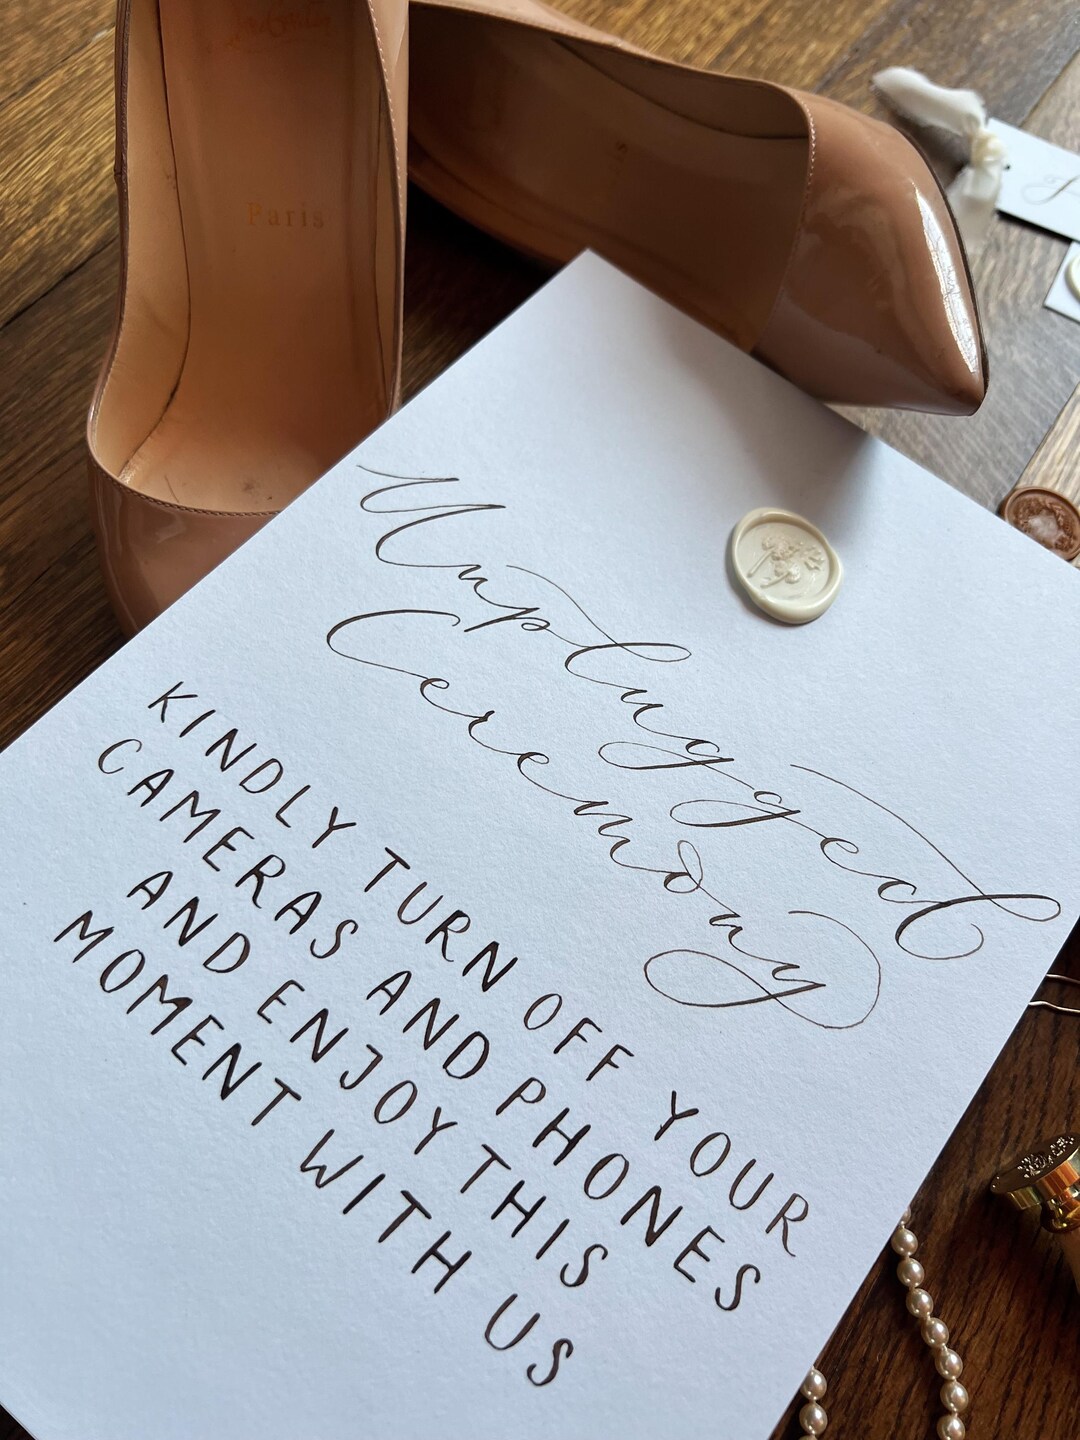 Paris
Unplugged
Ceremony
KINDLY TURN OFF YOUR
CAMERAS AND PHONES
AND ENJOY THIS
MOMENT WITH US